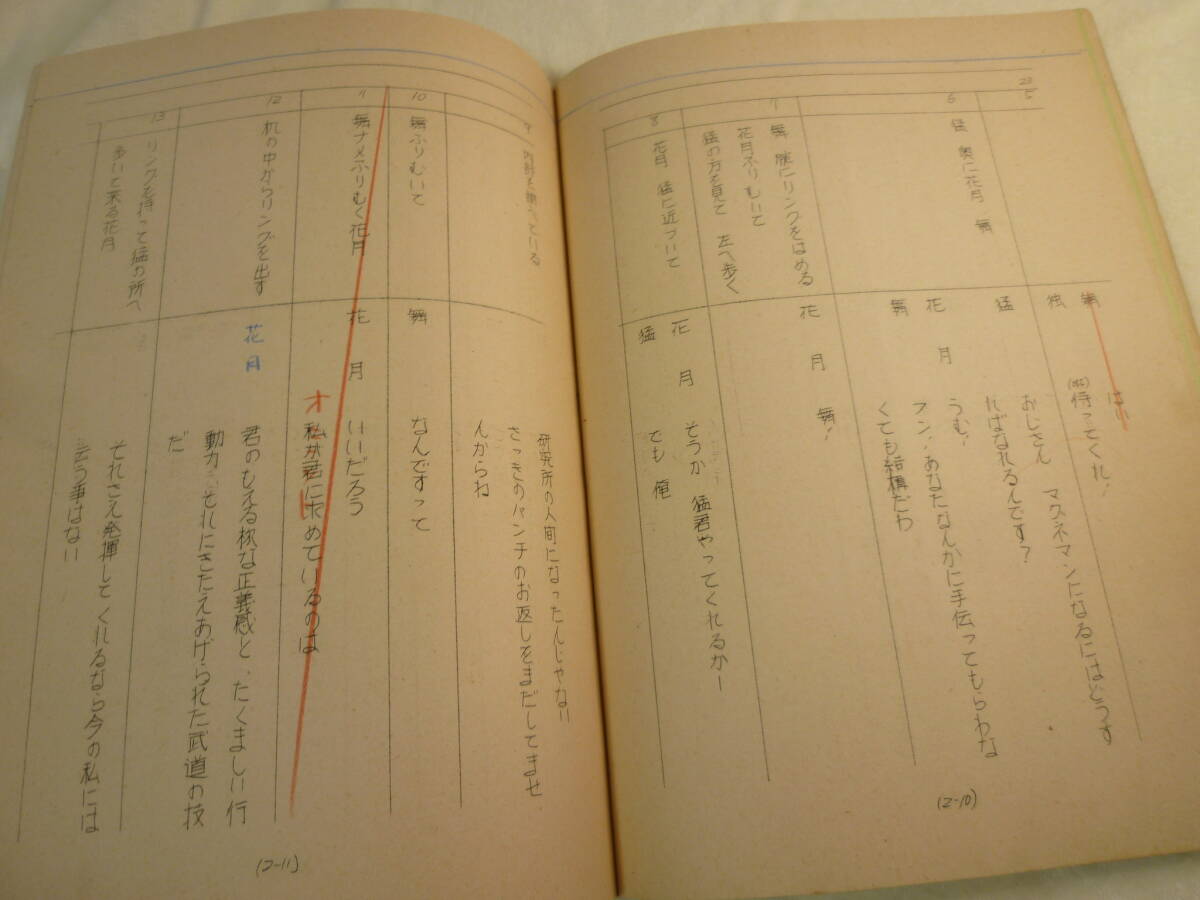 23
5
舞
はい
猛
(OFF)待ってくれ!
6
猛 奥に花月 舞
猛
おじさん マグネマンになるにはどうす
ればなれるんです?
花月
うむ!
舞
フン!あなたなんかに手伝ってもらわな
くても結構だわ
7
舞 腕にリングをはめる
花月ふりむいて
猛の方を見て 左へ歩く
花月
舞!
8
花月 猛に近づいて
花月
そうか 猛君やってくれるかー
猛
でも 俺
(2-10)
9
研究所の人間になったんじゃない
さっきのパンチのお返しをまだしてませ
んからね
10
舞ふりむいて
舞
なんですって
11
舞ナメふりむく花月
花月
いいだろう
オ
私が君に求めているのは
12
机の中からリングを出す
花月
君のもえる様な正義感と、たくましい行
動力、それにきたえあげられた武道の技
だ
13
リングを持って猛の所へ
歩いて来る花月
それさえ発揮してくれるなら今の私には
云う事はない
(2-11)